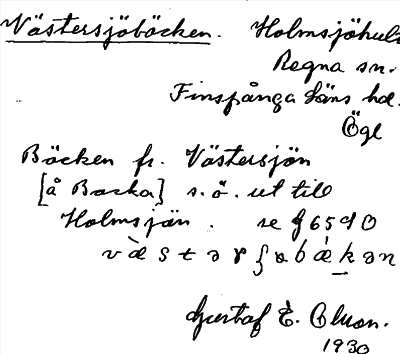 Västersjöbäcken. Holmsjöhult
Regna sn.
Finspånga läns hd.
Ögl
Bäcken fr. Västersjön
[å Backa] s.ö. ut till
Holmsjön. se
Gustaf E. Olson.
1930